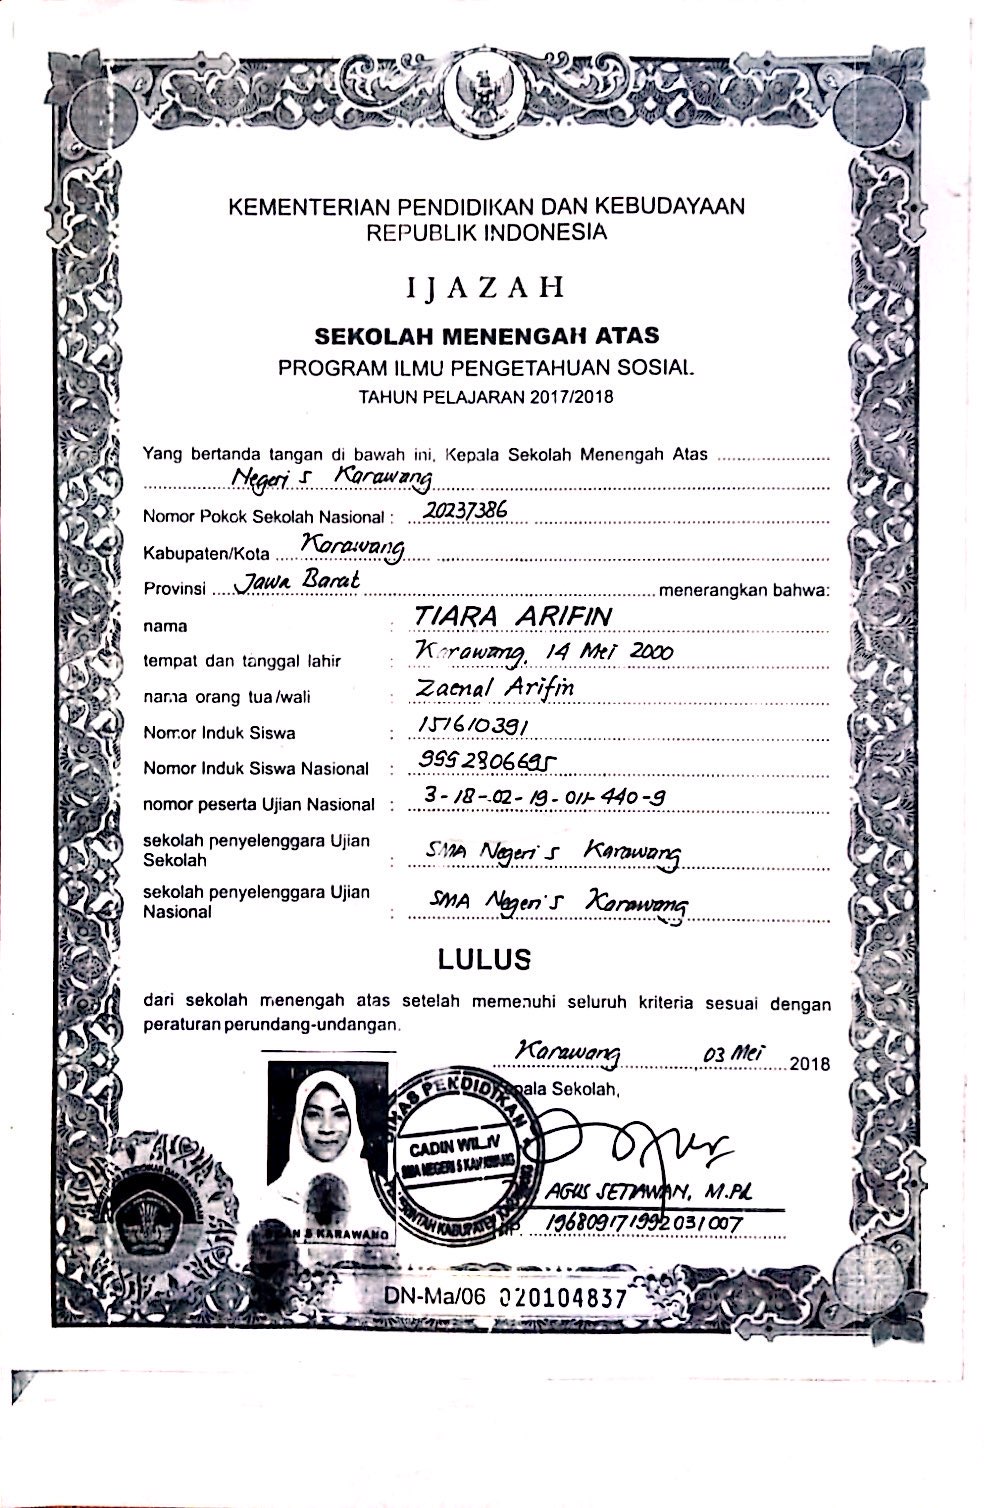 KEMENTERIAN PENDIDIKAN DAN KEBUDAYAAN
REPUBLIK INDONESIA
IJAZAH
SEKOLAH MENENGAH ATAS
PROGRAM ILMU PENGETAHUAN SOSIAL
TAHUN PELAJARAN 2017/2018
Yang bertanda tangan di bawah ini, Kepala Sekolah Menengah Atas
Negeri 5 Karawang
Nomor Pokok Sekolah Nasional : 20237386
Kabupaten/Kota Karawang
Provinsi Jawa Barat menerangkan bahwa:
nama : TIARA ARIFIN
tempat dan tanggal lahir : Karawang, 14 Mei 2000
nama orang tua/wali : Zaenal Arifin
Nomor Induk Siswa : 151610391
Nomor Induk Siswa Nasional : 9992806695
nomor peserta Ujian Nasional : 3-18-02-19-011-440-9
sekolah penyelenggara Ujian
Sekolah : SMA Negeri 5 Karawang
sekolah penyelenggara Ujian
Nasional : SMA Negeri 5 Karawang
LULUS
dari sekolah menengah atas setelah memenuhi seluruh kriteria sesuai dengan
peraturan perundang-undangan.
Karawang 03 Mei 2018
pala Sekolah,
DINAS PENDIDIKAN
CADIN WIL.IV
SMA NEGERI 5 KARAWANG
KABUPATEN
AGUS SETIAWAN, M.Pd
196809171992031007
5 KARAWANG
DN-Ma/06 020104837